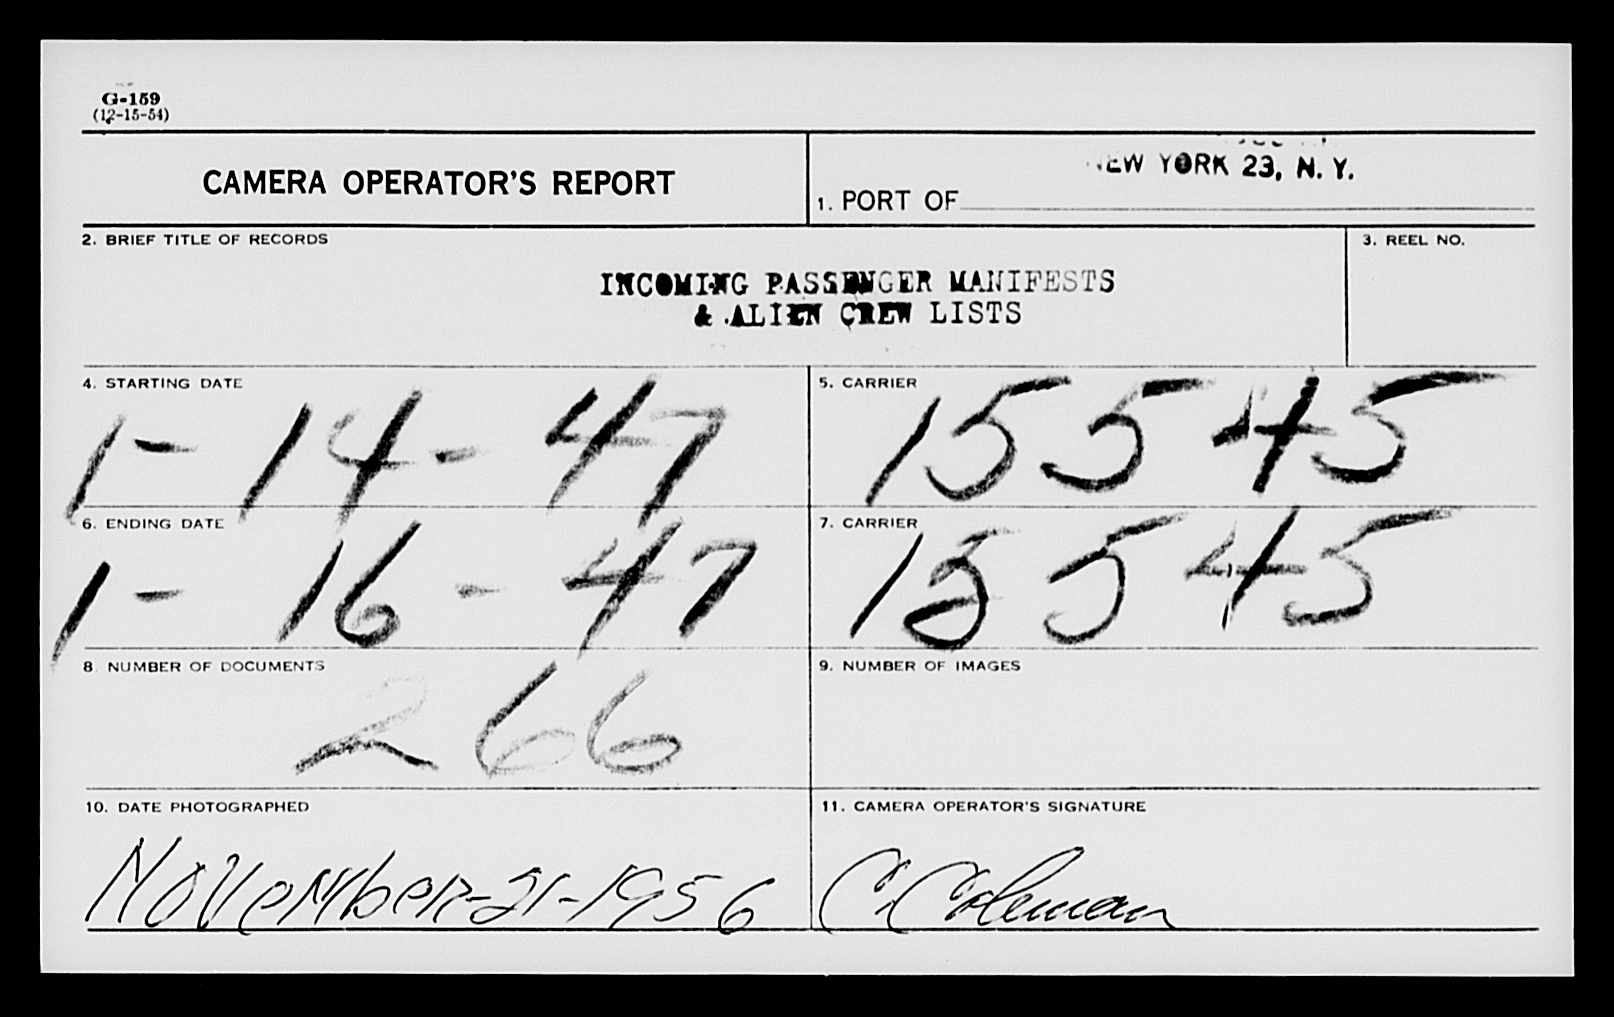 G-159
(12-15-54)
CAMERA OPERATOR'S REPORT
NEW YORK 23, N. Y.
1. PORT OF
2. BRIEF TITLE OF RECORDS
3. REEL NO.
INCOMING PASSENGER MANIFESTS
& ALIEN CREW LISTS
4. STARTING DATE
1-14-47
5. CARRIER
15545
6. ENDING DATE
1-16-47
7. CARRIER
15545
8 NUMBER OF DOCUMENTS
266
9. NUMBER OF IMAGES
10. DATE PHOTOGRAPHED
November-21-1956
11. CAMERA OPERATOR'S SIGNATURE
C. Coleman